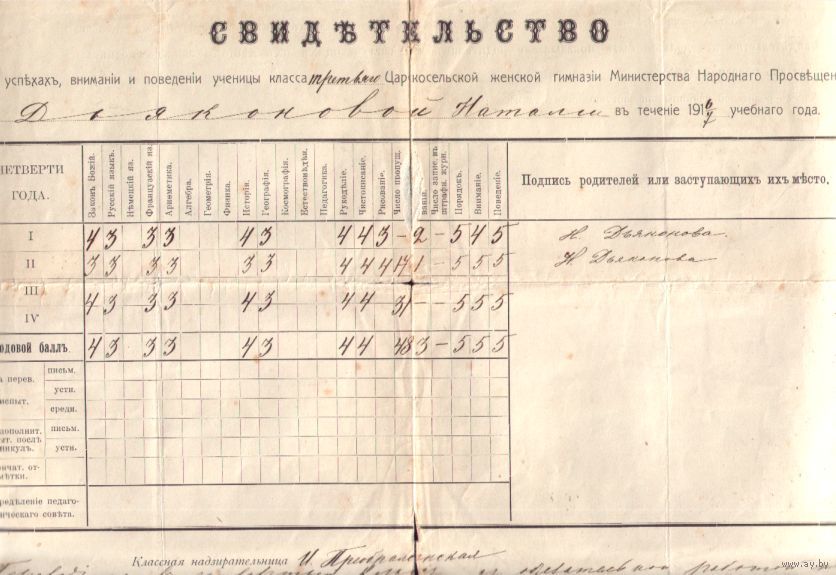 СВИДѢТЕЛЬСТВО
успѣхахъ, вниманіи и поведеніи ученицы класса третьяго Царскосельской женской гимназіи Министерства Народнаго Просвѣщен
Дьяконовой Наталіи въ теченіе 1916/7 учебнаго года.
ЧЕТВЕРТИ ГОДА.
Законъ Божій.
Русскій языкъ.
Нѣмецкій яз.
Французскій яз.
Ариѳметика.
Алгебра.
Геометрія.
Физика.
Исторія.
Географія.
Космографія.
Естествовѣдѣн.
Педагогика.
Рукодѣліе.
Чистописаніе.
Рисованіе.
Число пропущ.
Число запис. въ штрафн. журн.
Порядокъ.
Вниманіе.
Поведеніе.
Подпись родителей или заступающихъ ихъ мѣсто.
I 4 3 3 3 4 3 4 4 3 - 2 - 5 4 5 Н. Дьяконова.
II 3 3 3 3 3 3 4 4 4 17 1 - 5 5 5 Н. Дьяконова
III
4 3 3 3 4 3 4 4 31 - - 5 5 5
IV
одовой баллъ. 4 3 3 3 4 3 4 4 48 3 - 5 5 5
а перев. испыт.
письм.
устн.
средн.
дополнит. ыт. послѣ никул.
письм.
устн.
нчат. от- мѣтки.
редѣленіе педаго-
ическаго совѣта.
Классная надзирательница И. Преображенская
www.ay.by